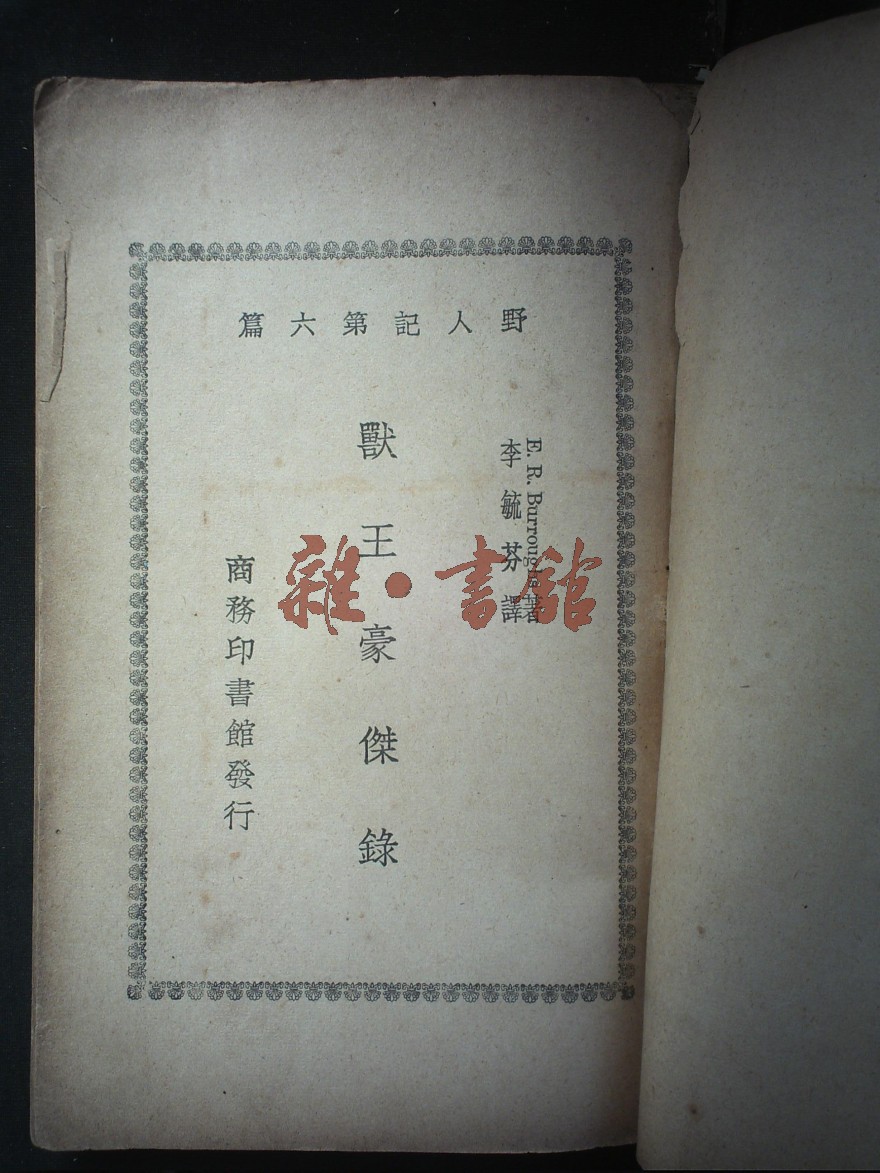 野人記第六篇
E. R. Burroughs著
李毓芬譯
獸王豪傑錄
商務印書館發行
雜·書館